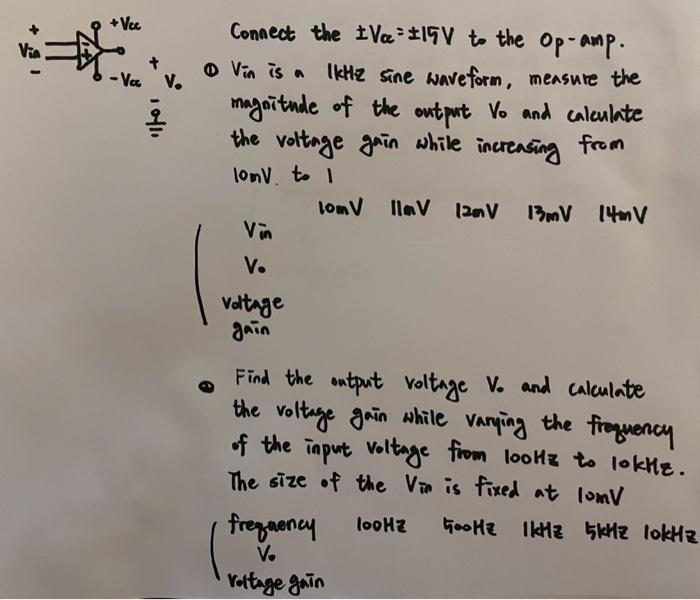 +Vcc
+
Vin
-
-Vcc
+
Vo
-
Connect the ±Vcc=±15V to the Op-amp.
① Vin is a 1kHz sine waveform, measure the
magnitude of the output Vo and calculate
the voltage gain while increasing from
10mV. to 1
10mV 11mV 12mV 13mV 14mV
Vin
Vo
voltage
gain
② Find the output voltage Vo and calculate
the voltage gain while varying the frequency
of the input voltage from 100Hz to 10kHz.
The size of the Vin is fixed at 10mV
frequency 100Hz 500Hz 1kHz 5kHz 10kHz
Vo
voltage gain